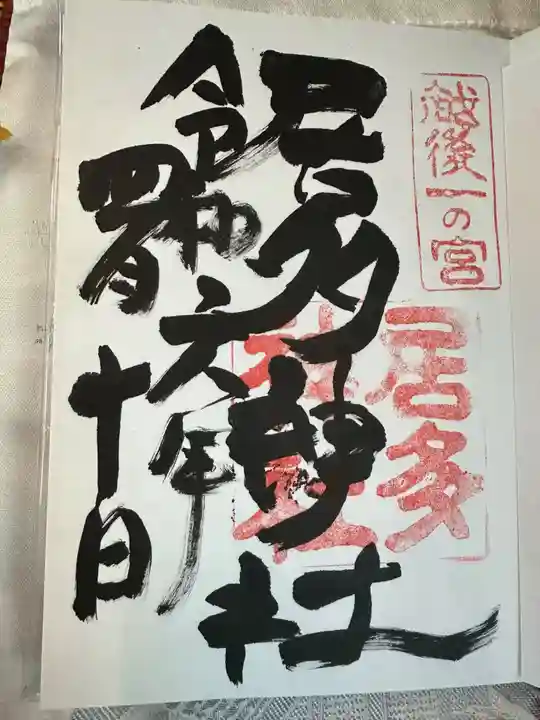 越後一の宮
居多
神社
居多神社
令和六年
四月
十日